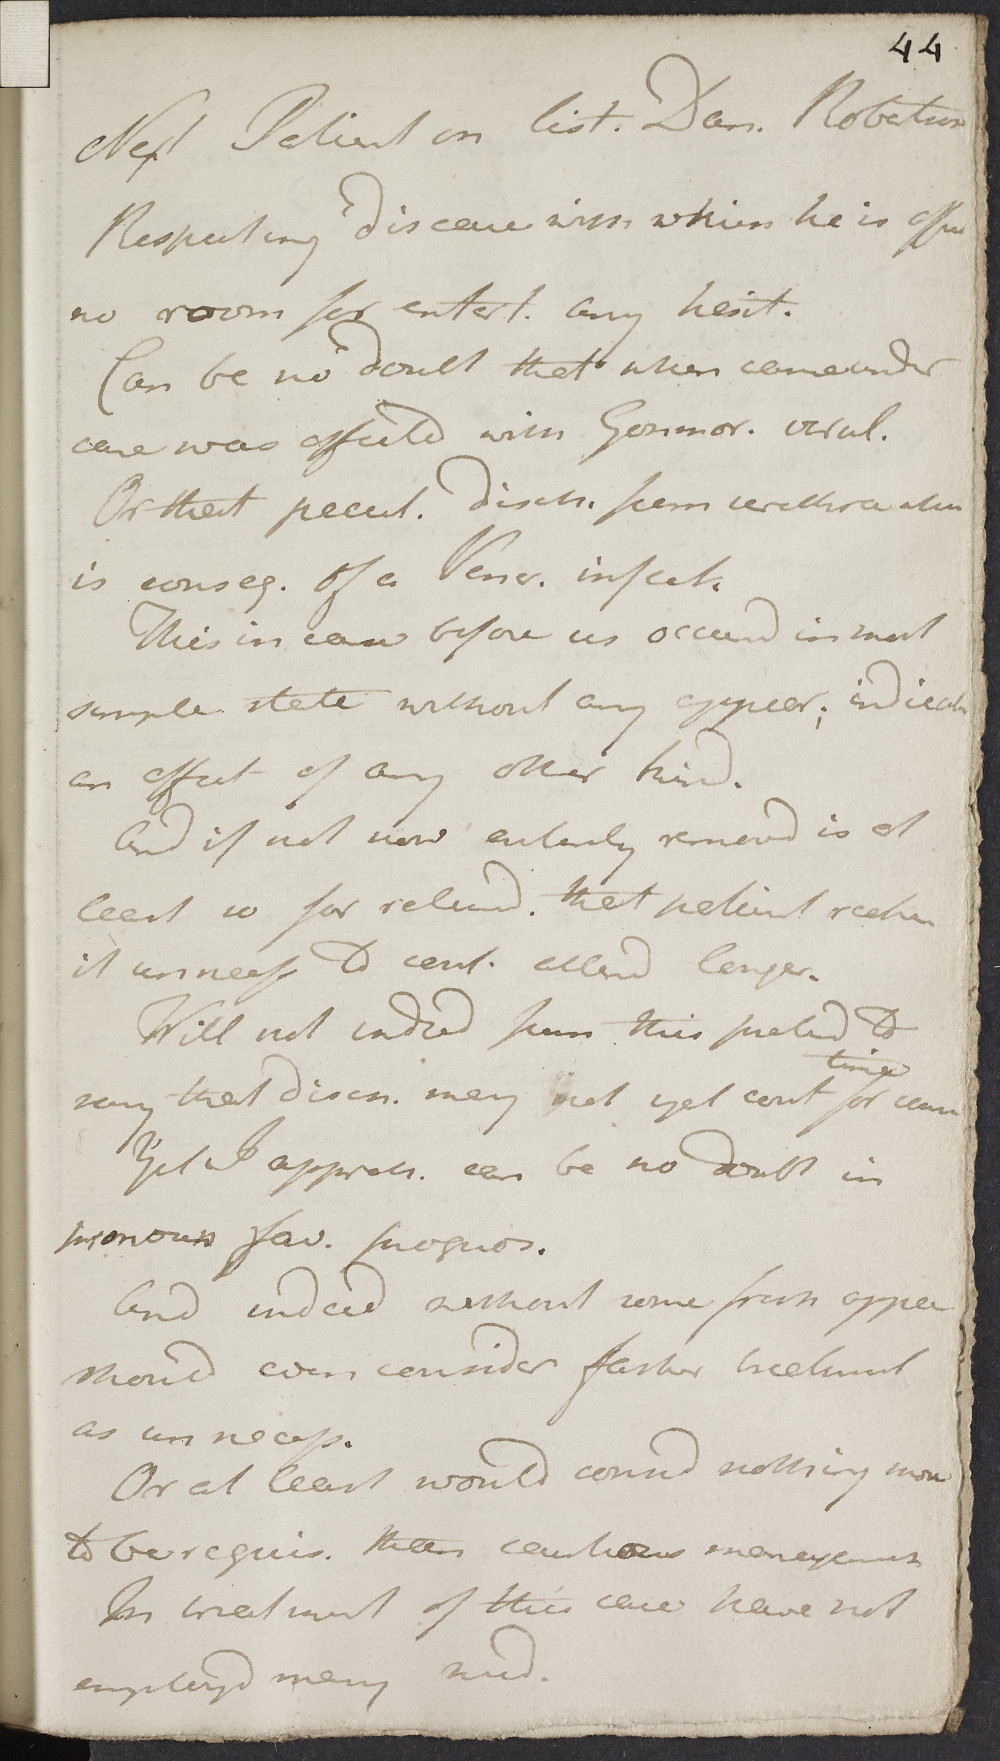 44
Next Patient on list. Dan. Robertson
Respecting disease with which he is affec
no room for entert. any hesit.
Can be no doubt that when came under
care was affected with Gonnor. virul.
Or that pecul. disch. from urethra when
is conseq. of a Vener. infect.
This in case before us occurd in most
simple state without any appear. indicat
an affect of any other kind.
And if not now entirely removd is at
least so far relievd. that patient
it unnecess to cont. attend longer.
Will not indeed from this pretend to
say that disch. may not yet cont for some
time
Yet I appreh. can be no doubt in
pronoun fav. prognos.
And indeed without some fresh appea
should even consider farther treatment
as unnecess.
Or at least would consid nothing more
to be requis. than cautious management
In treatment of this case have not
employd many med.